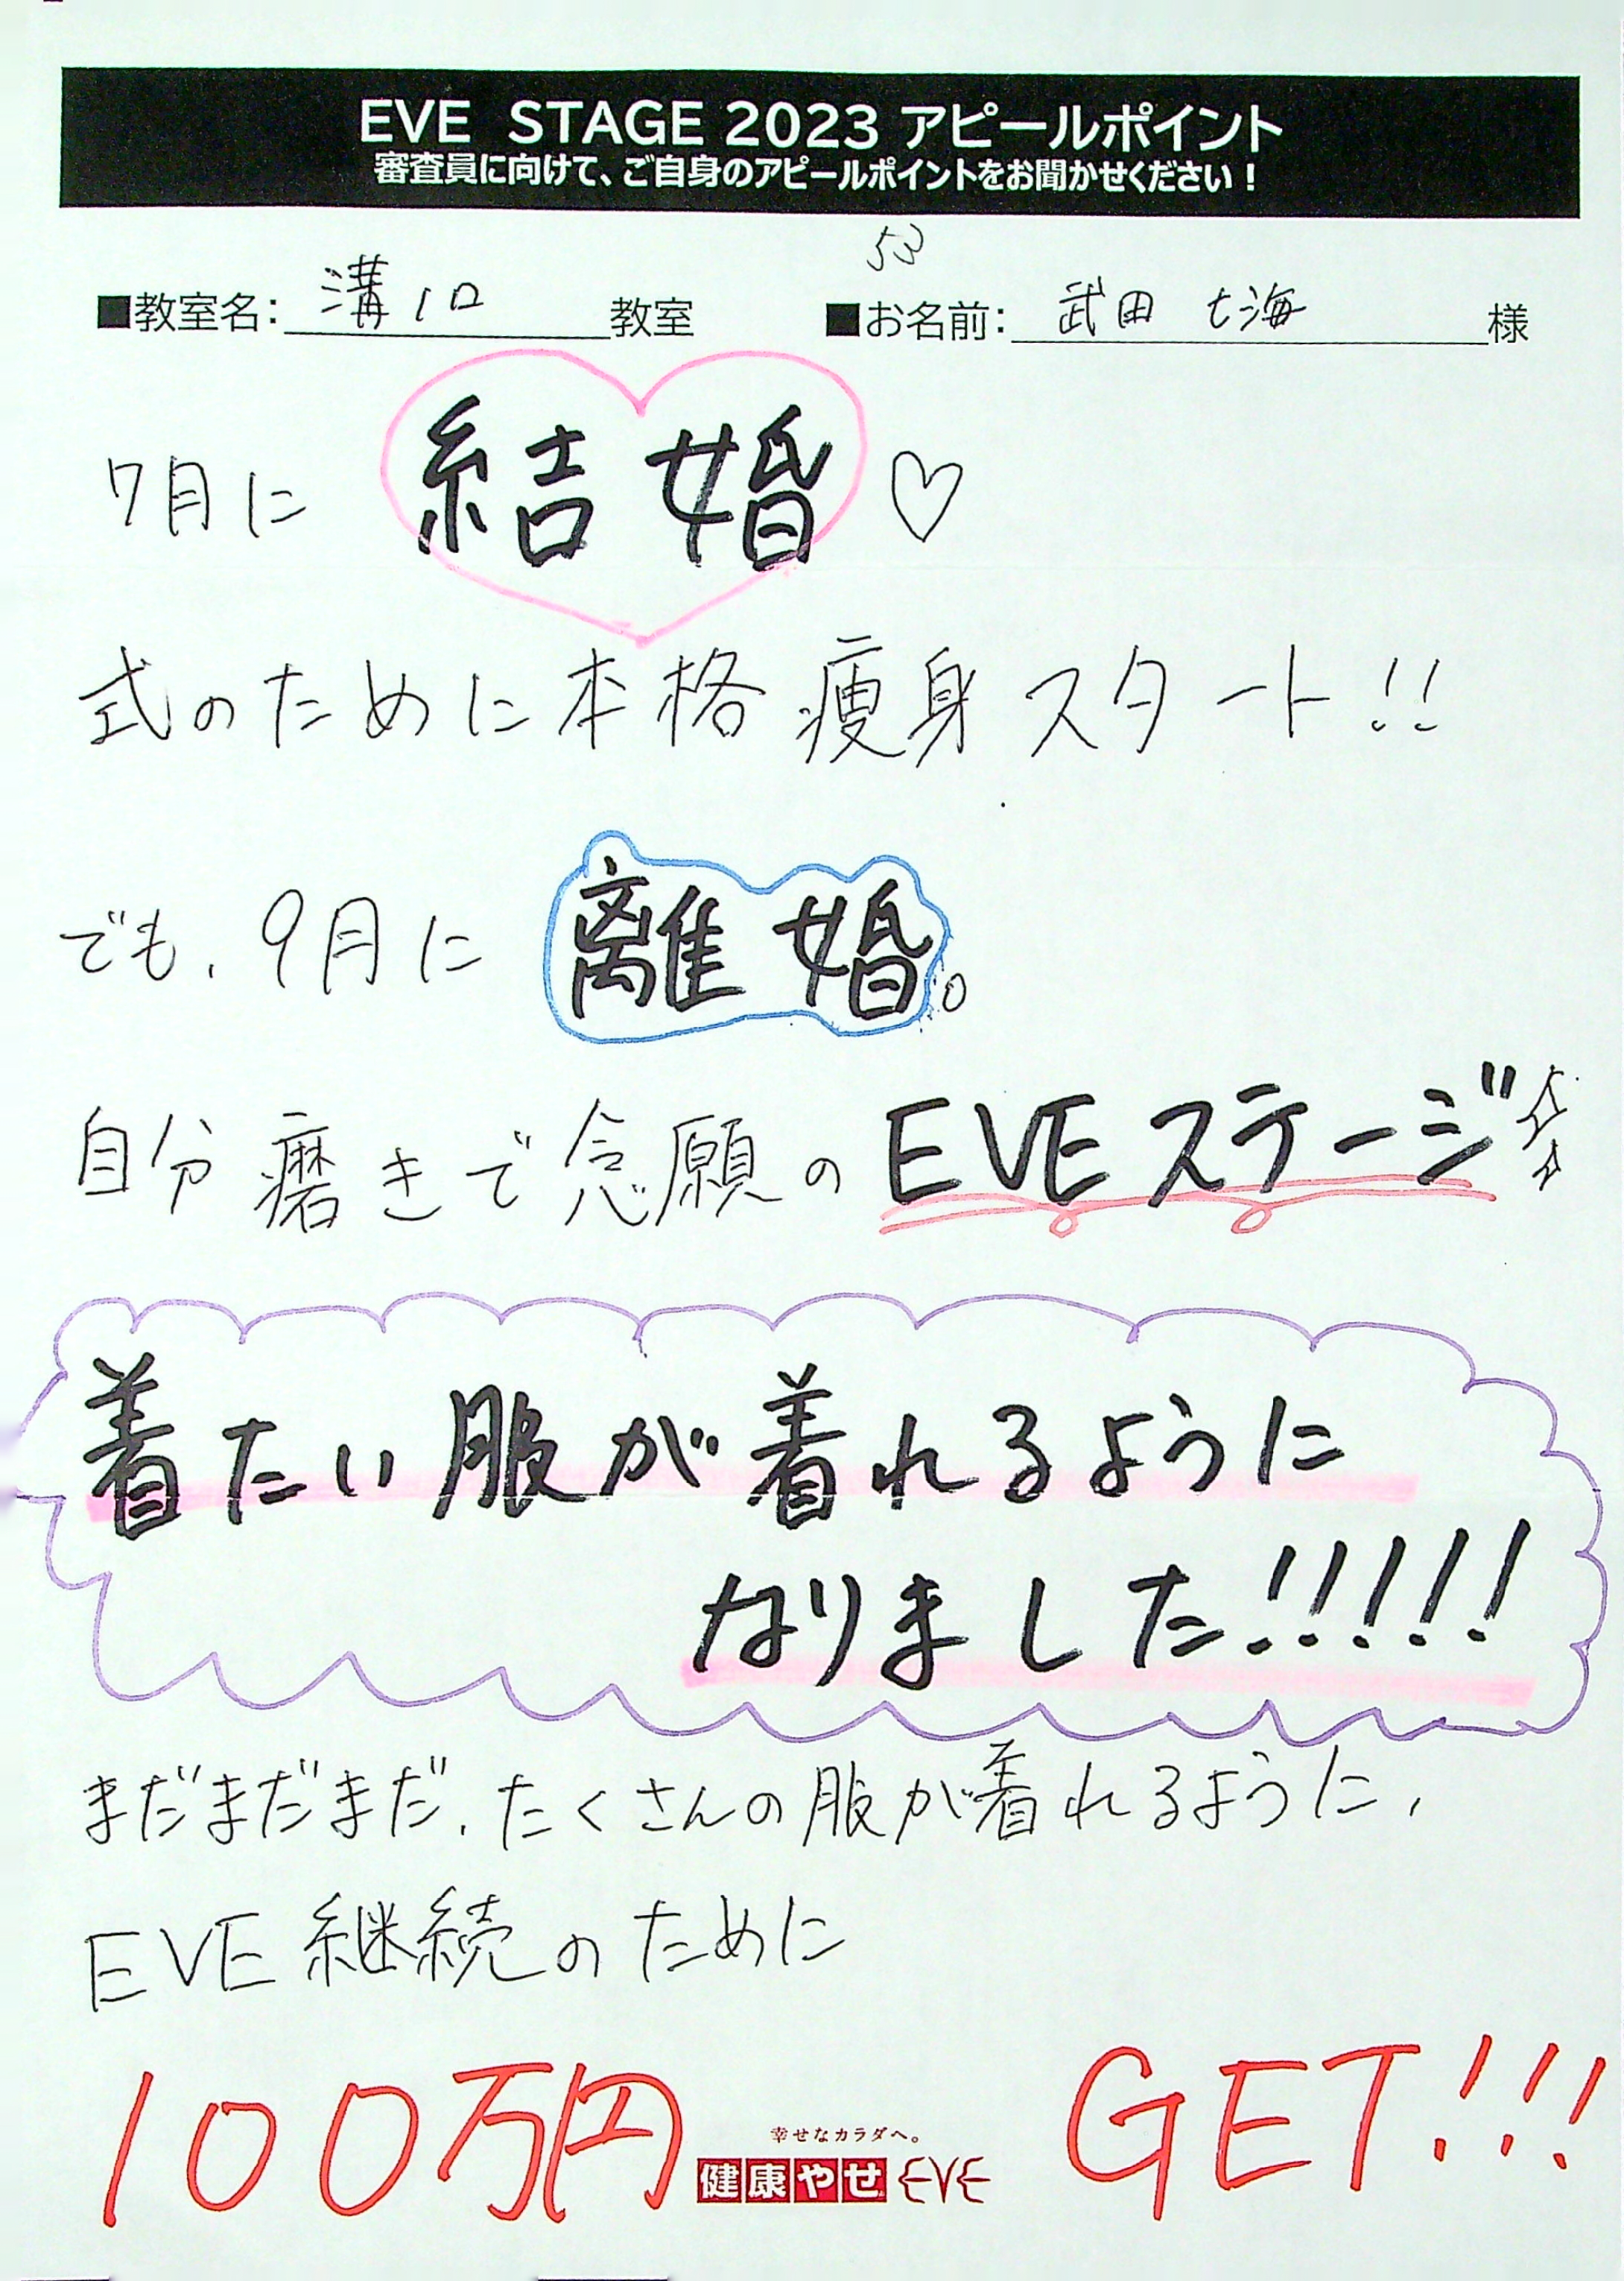 EVE STAGE 2023 アピールポイント
審査員に向けて、ご自身のアピールポイントをお聞かせください！
53
■教室名：溝ノ口教室 ■お名前：武田 七海様
7月に 結婚♡
式のために本格痩身スタート!!
でも、9月に 離婚。
自分磨きで念願のEVEステージ
着たい服が着れるように
なりました!!!!!
まだまだまだ、たくさんの服が着れるように、
EVE継続のために
100万円 GET!!!
幸せなカラダへ。
健康やせ EVE